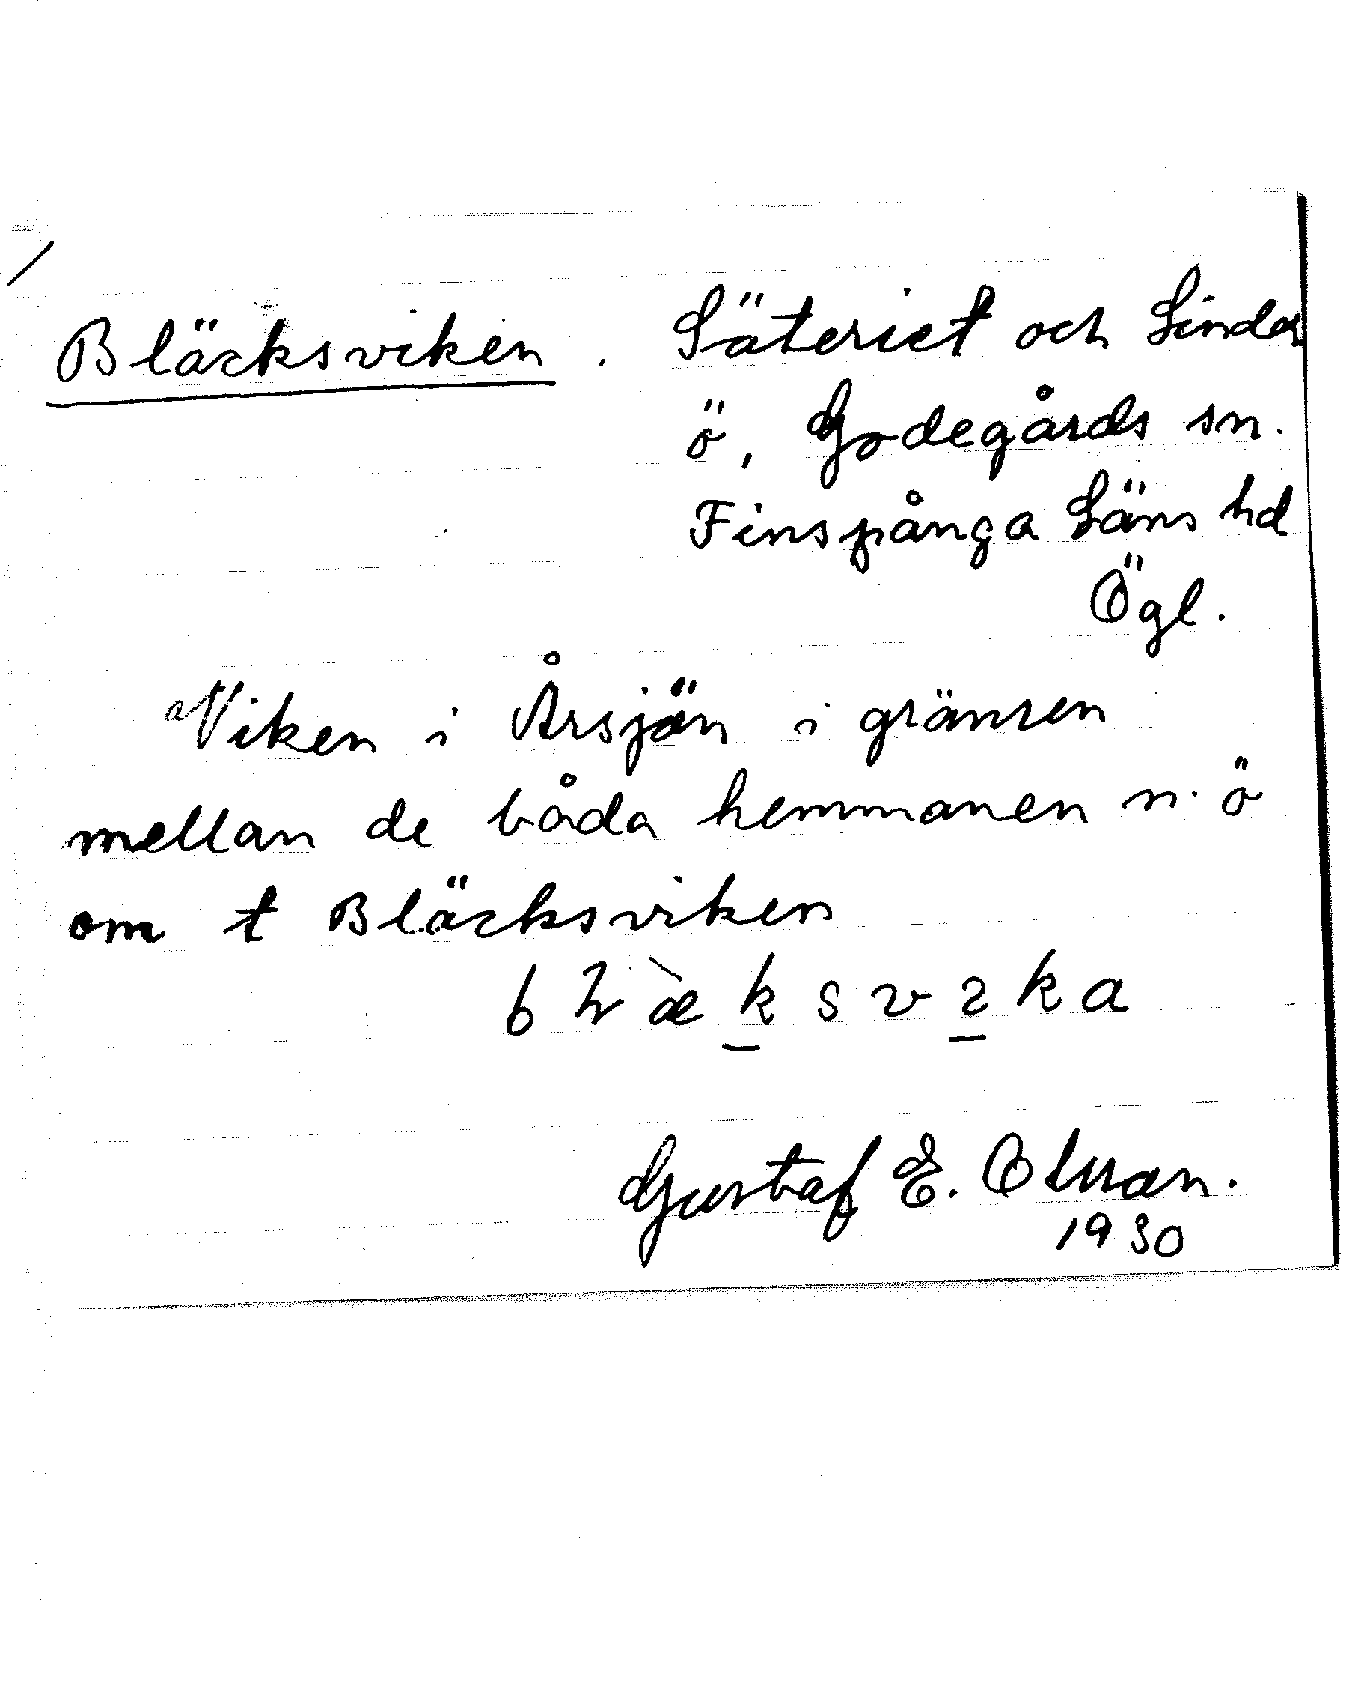 Bläcksviken. Säteriet och Linder
ö, Godegårds sn.
Finspånga Läns hd
Ögl.
a Viken i Årsjön i gränsen
mellan de båda hemmanen n. ö
om t Bläcksviken
Gustaf E. Olsson.
1930